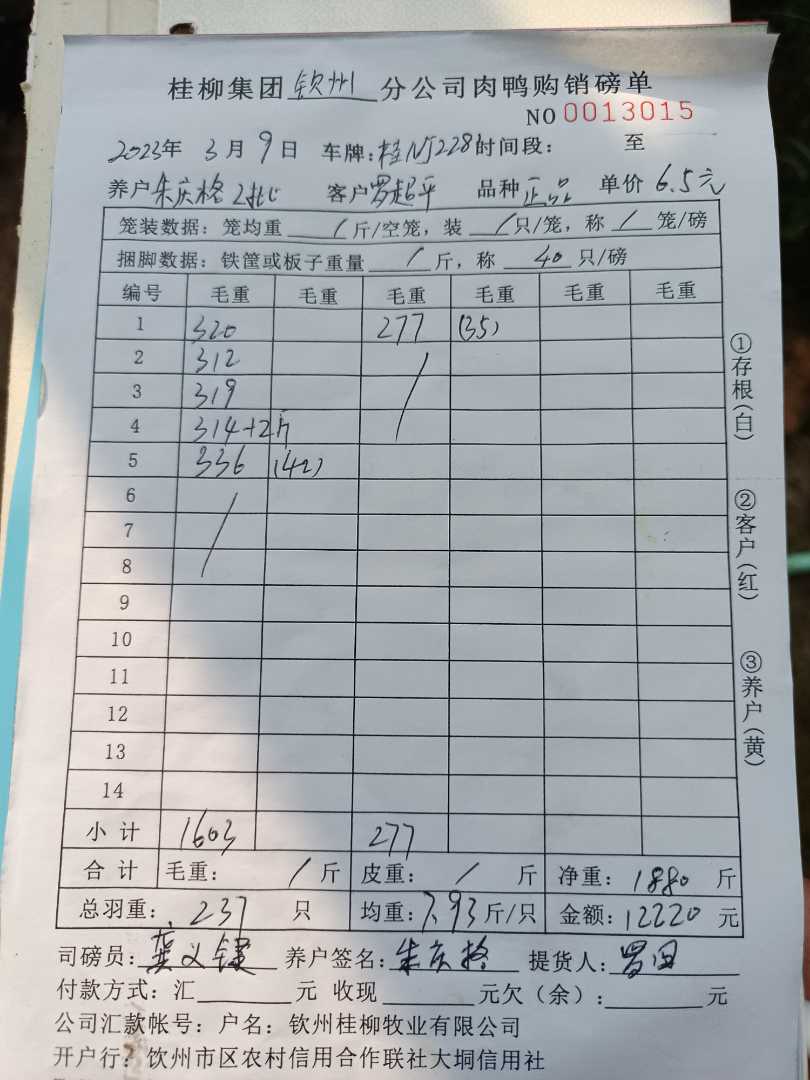 桂柳集团 钦州 分公司肉鸭购销磅单
NO 0013015
2023年 3月 9日 车牌:桂NJ228 时间段: 至
养户 朱庆格 2批 客户 罗超平 品种 正品 单价 6.5元
笼装数据:笼均重 / 斤/空笼,装 / 只/笼,称 / 笼/磅
捆脚数据:铁筐或板子重量 / 斤,称 40 只/磅
编号 毛重 毛重 毛重 毛重 毛重 毛重
1 320 277 (35)
2 312
3 319
4 314+2斤
5 336 (42)
6
7
8
9
10
11
12
13
14
小计 1603 277
合计 毛重: / 斤 皮重: / 斤 净重: 1880 斤
总羽重: 237 只 均重: 7.93 斤/只 金额: 12220 元
司磅员: 龚义 养户签名: 朱庆格 提货人: 罗
付款方式:汇 元 收现 元欠(余): 元
公司汇款帐号:户名:钦州桂柳牧业有限公司
开户行:钦州市区农村信用合作联社大垌信用社
①存根(白)
②客户(红)
③养户(黄)